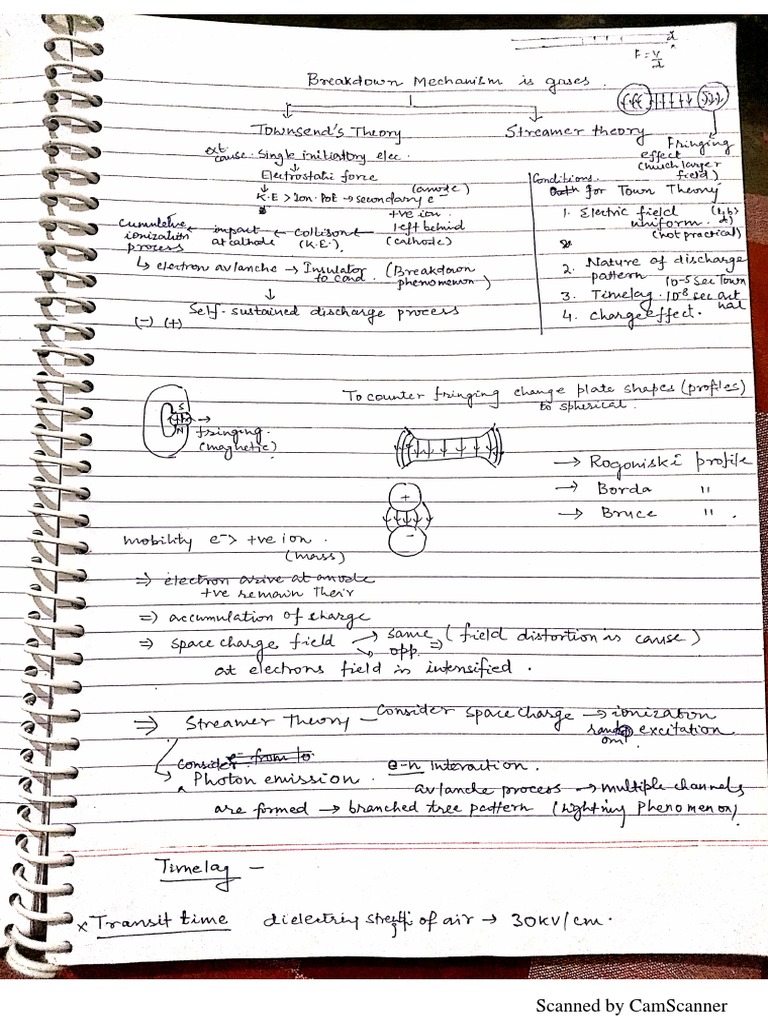 d
F = V/d
Breakdown Mechanism is gases.
Townsend's Theory
Streamer theory
Fringing effect (much larger field)
ext cause. Single initiatory elec.
Electrostatic force
K.E > Ion. Pot → secondary e⁻ (anode)
+ve ion left behind (cathode)
Cumulative ionization process ← impact at cathode ← Collisons (K.E.) ←
↳ electron avalanche → Insulator to cond. (Breakdown phenomenon)
↓
Self-sustained discharge process
(-) (+)
Conditions for Town Theory
1. Electric field uniform (not practical)
2. Nature of discharge pattern
3. Timelag. 10⁻⁵ sec Town 10⁻⁸ sec act nal
4. Charge effect.
To counter fringing change plate shapes (profiles) to spherical.
S
N
fringing. (magnetic)
→ Rogoniski profile
→ Borda "
→ Bruce ".
+
-
mobility e⁻ > +ve ion. (mass)
⇒ electron arive at anode
+ve remain their
⇒ accumulation of charge
⇒ space charge field → same
→ opp. ⇒ (field distortion is cause)
at electrons field is intensified.
⇒ Streamer Theory - Consider space charge → ionization
excitation
Consider e⁻ from to
Photon emission. e-n Interaction.
avalanche process → multiple channels
are formed → branched tree pattern (Lightning Phenomenon)
Timelag -
x Transit time dielectring strength of air → 30KV/cm.
Scanned by CamScanner